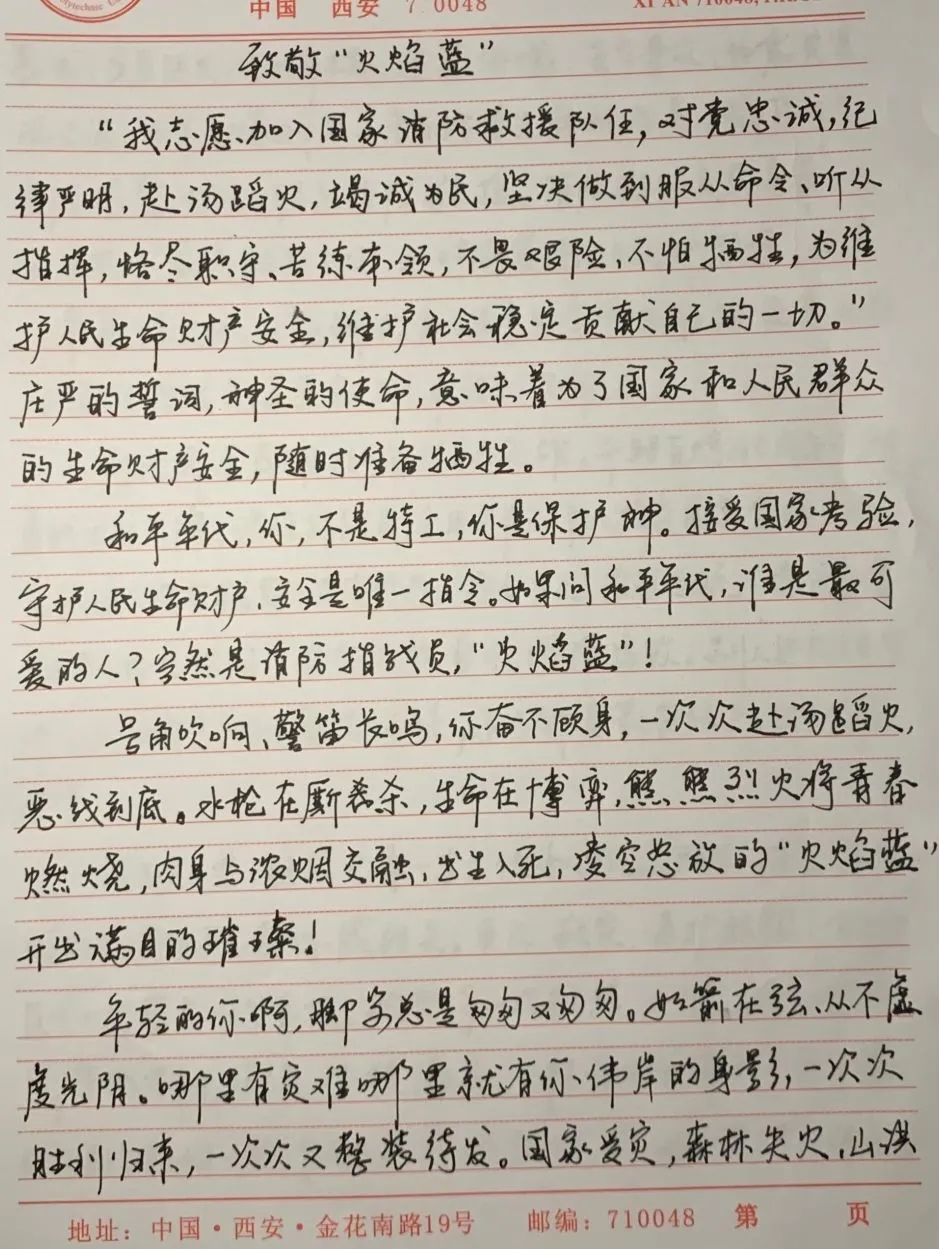 中国 西安 7 0048
XI'AN 710048,
致敬“火焰蓝”
“我志愿加入国家消防救援队伍，对党忠诚，纪
律严明，赴汤蹈火，竭诚为民，坚决做到服从命令、听从
指挥，恪尽职守、苦练本领，不畏艰险、不怕牺牲，为维
护人民生命财产安全，维护社会稳定贡献自己的一切。”
庄严的誓词，神圣的使命，意味着为了国家和人民群众
的生命财产安全，随时准备牺牲。
和平年代，你，不是特工，你是保护神。接受国家考验，
守护人民生命财产、安全是唯一指令。如果问和平年代，谁是最可
爱的人？当然是消防指战员，“火焰蓝”！
号角吹响、警笛长鸣，你奋不顾身，一次次赴汤蹈火，
恶线到底。水枪在厮杀，生命在博弈，熊熊烈火将青春
燃烧，肉身与浓烟交融，出生入死，凌空怒放的“火焰蓝”
开出满目的璀璨！
年轻的你啊，脚步总是匆匆又匆匆。如箭在弦、从不虚
度光阴。哪里有灾难哪里就有你伟岸的身影，一次次
胜利归来，一次次又整装待发。国家受灾，森林失火，山洪
地址：中国·西安·金花南路19号 邮编：710048 第 页